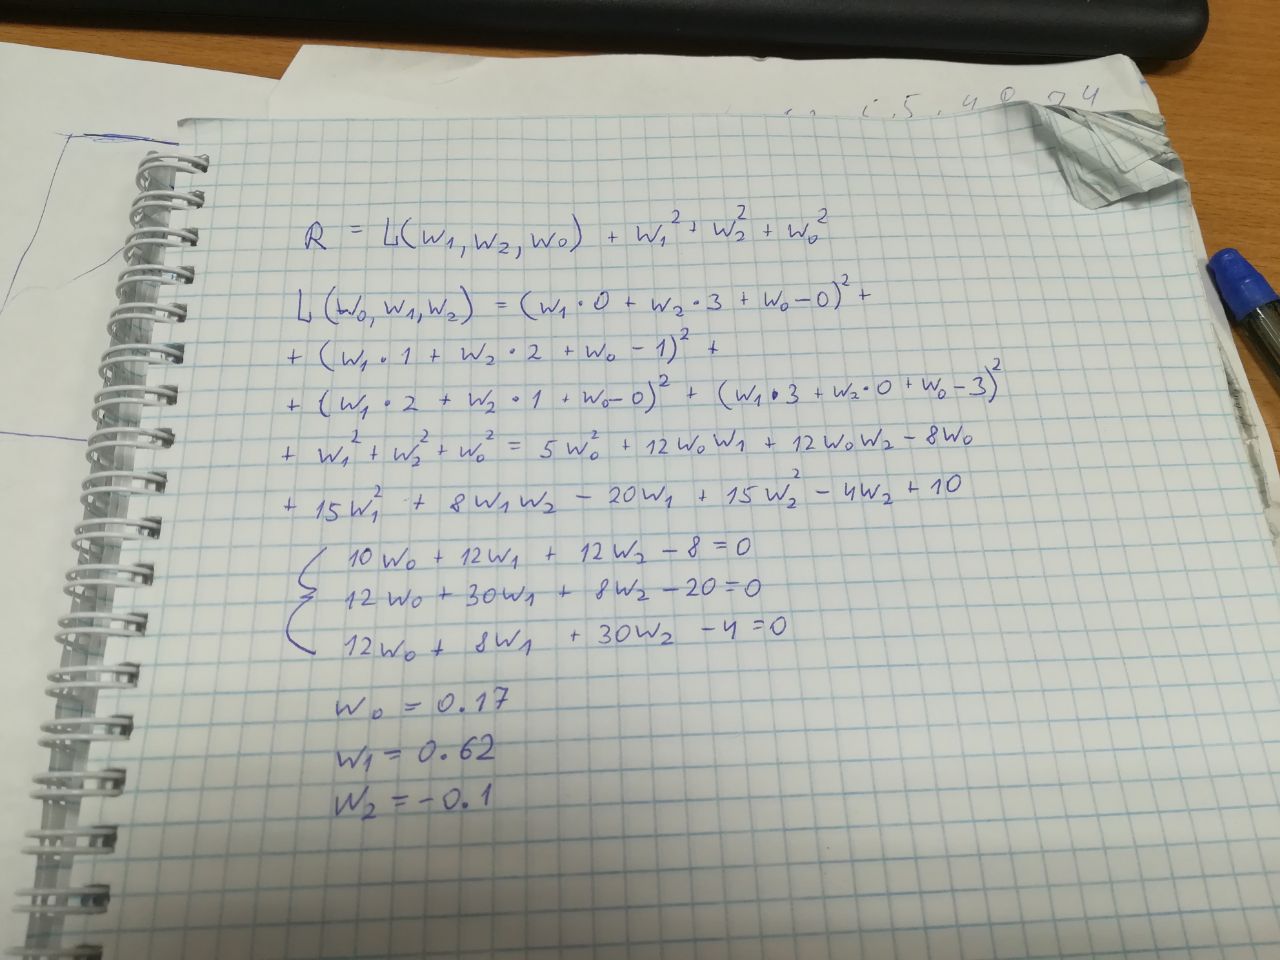 i . 5 . 4 0 7 4
R = L(w₁, w₂, w₀) + w₁² + w₂² + w₀²
L(w₀, w₁, w₂) = (w₁·0 + w₂·3 + w₀-0)² +
+ (w₁·1 + w₂·2 + w₀ - 1)² +
+ (w₁·2 + w₂·1 + w₀-0)² + (w₁·3 + w₂·0 + w₀-3)²
+ w₁² + w₂² + w₀² = 5w₀² + 12w₀w₁ + 12w₀w₂ - 8w₀
+ 15w₁² + 8w₁w₂ - 20w₁ + 15w₂² - 4w₂ + 10
{ 10w₀ + 12w₁ + 12w₂ - 8 = 0
12w₀ + 30w₁ + 8w₂ - 20 = 0
12w₀ + 8w₁ + 30w₂ - 4 = 0
w₀ = 0.17
w₁ = 0.62
w₂ = -0.1